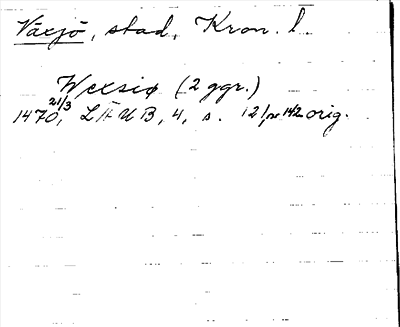 Växjö, stad, Kron. l.
Wexsiø (2 ggr.)
1470 21/3, LÄUB, 4, s. 121, nr 142 orig.